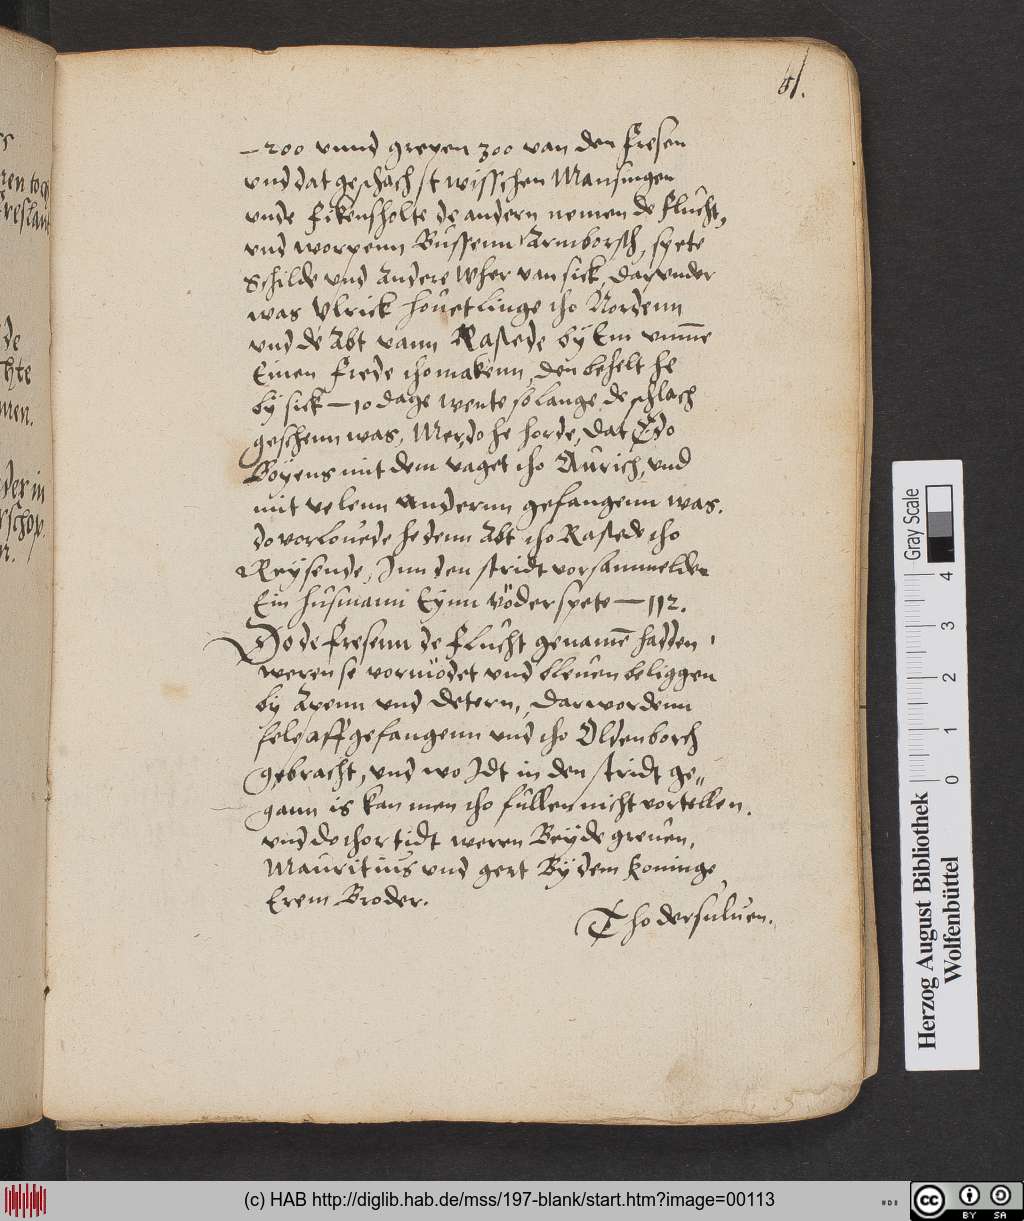 51.
– 200 vnnd grepen 300 van den Fresen
vnd dat geschach twisschen Mansingen
vnde Fikensholte de andern nemen de flucht,
vnd worpenn Bussenn Armborsth, spete
Schilde vnd Andere Wher van sick, darvnder
was Vlrick houetlinge tho Nordenn
vnd de Abt vann Rastede by Em vmme
Einen Frede tho makenn, den behelt he
by sick – 10 dage wente so lange de schlach
geschenn was, Mer do he horde, dat Edo
Boyens mit dem vaget tho Aurich, vnd
mit velenn anderen gefangenn was.
do vorlouede he denn Abt tho Rastede tho
Reysende, Inn den stridt vorsammelde
Ein husmann Eynn vöder spete – 112.
Do de Fresenn de Flucht genamē hadden
weren se vormödet vnd bleuen beliggen
by Apenn vnd Detern, dar wordenn
sele aff gefangenn vnd tho Oldenborch
gebracht, vnd wo Idt in den stridt ge„
gann is kan men tho fullen nicht vortellen.
vnd do thor tidt weren Beyde greuen,
Mauritius vnd gert By dem koninge
Erem Broder.
Tho dersuluen.
de
hte
men.
der in
rschop.
Herzog August Bibliothek
Wolfenbüttel
Gray Scale
0 1 2 3 4
(c) HAB http://diglib.hab.de/mss/197-blank/start.htm?image=00113
cc BY SA